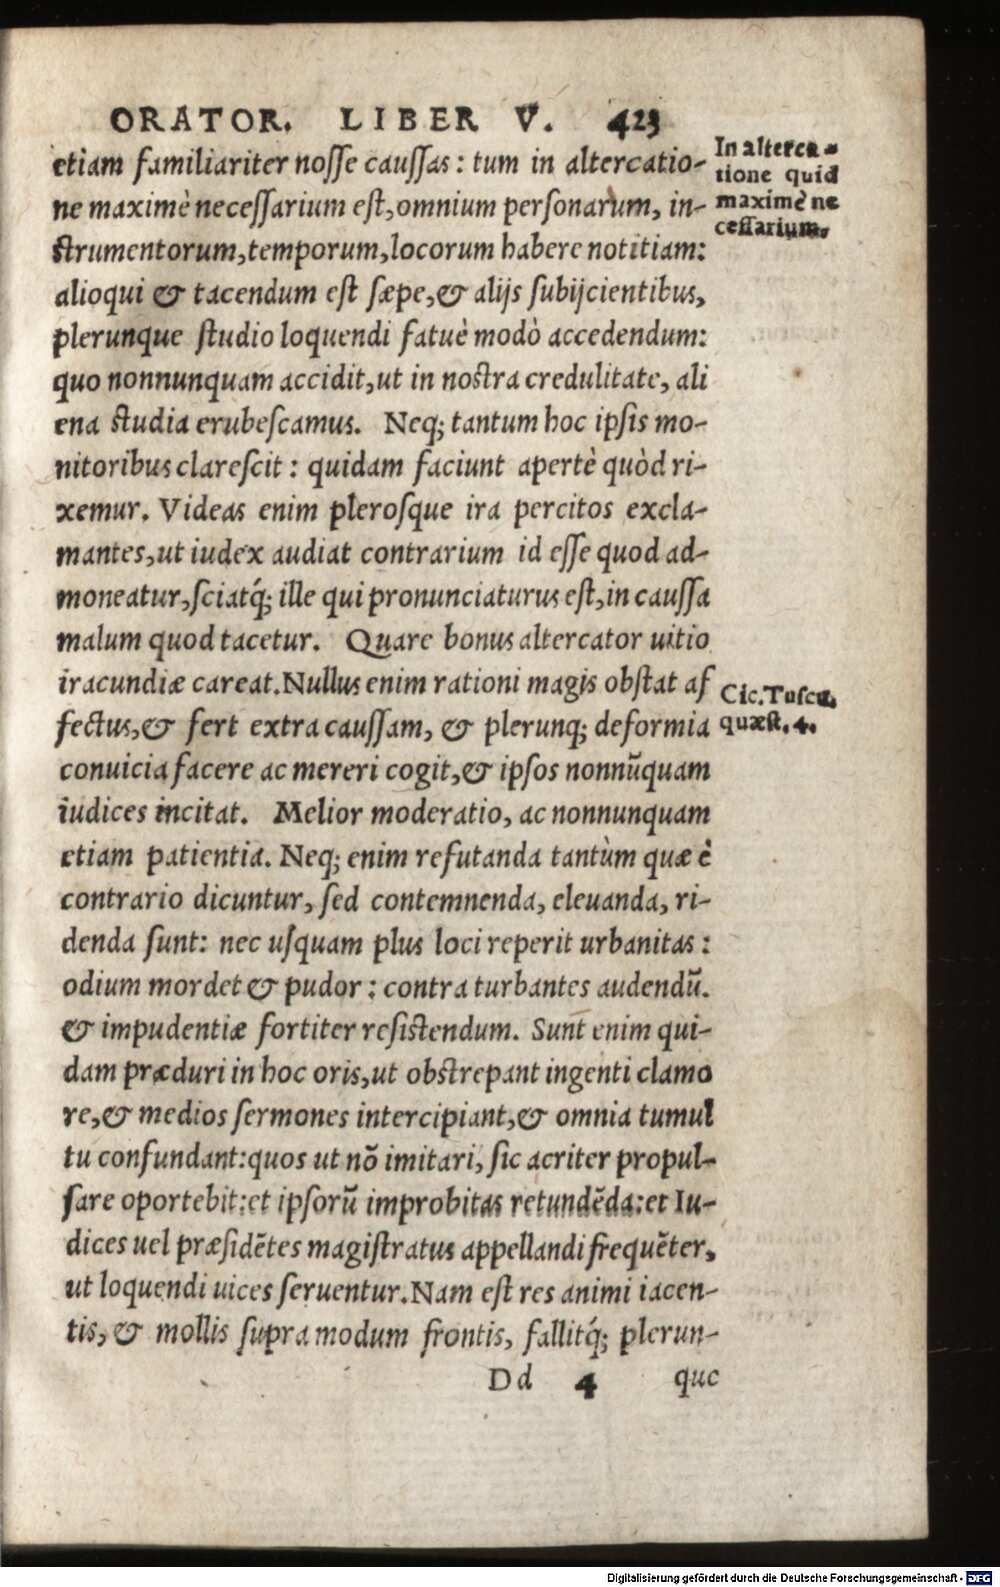 ORATOR. LIBER V. 423
etiam familiariter nosse caussas: tum in altercatio-
ne maximè necessarium est, omnium personarum, in-
strumentorum, temporum, locorum habere notitiam:
alioqui & tacendum est sæpe, & alijs subijcientibus,
plerunque studio loquendi fatuè modò accedendum:
quo nonnunquam accidit, ut in nostra credulitate, ali
ena studia erubescamus. Neq; tantum hoc ipsis mo-
nitoribus clarescit: quidam faciunt apertè quòd ri-
xemur. Videas enim plerosque ira percitos excla-
mantes, ut iudex audiat contrarium id esse quod ad-
moneatur, sciatq́; ille qui pronunciaturus est, in caussa
malum quod tacetur. Quare bonus altercator uitio
iracundiæ careat. Nullus enim rationi magis obstat af
fectus, & fert extra caussam, & plerunq; deformia
conuicia facere ac mereri cogit, & ipsos nonnũquam
iudices incitat. Melior moderatio, ac nonnunquam
etiam patientia. Neq; enim refutanda tantùm quæ è
contrario dicuntur, sed contemnenda, eleuanda, ri-
denda sunt: nec usquam plus loci reperit urbanitas:
odium mordet & pudor: contra turbantes audendũ.
& impudentiæ fortiter resistendum. Sunt enim qui-
dam præduri in hoc oris, ut obstrepant ingenti clamo
re, & medios sermones intercipiant, & omnia tumul
tu confundant: quos ut nõ imitari, sic acriter propul-
sare oportebit: et ipsorũ improbitas retundẽda: et Iu-
dices uel præsidẽtes magistratus appellandi frequẽter,
ut loquendi uices seruentur. Nam est res animi iacen-
tis, & mollis supra modum frontis, fallitq́; plerun-
Dd 4 que
In alterca-
tione quid
maximè ne
cessarium.
Cic. Tuscu.
quæst. 4.
Digitalisierung gefördert durch die Deutsche Forschungsgemeinschaft - DFG